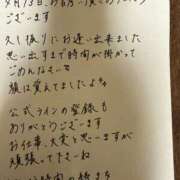 ございます
久し振りにお逢い出来ました
思い出すまで時間が掛かって
ごめんなさいです
顔は覚えてましたよ
公式ラインの登録も
ありがとうございます
お仕事、大変と思いますが
頑張って下さいね